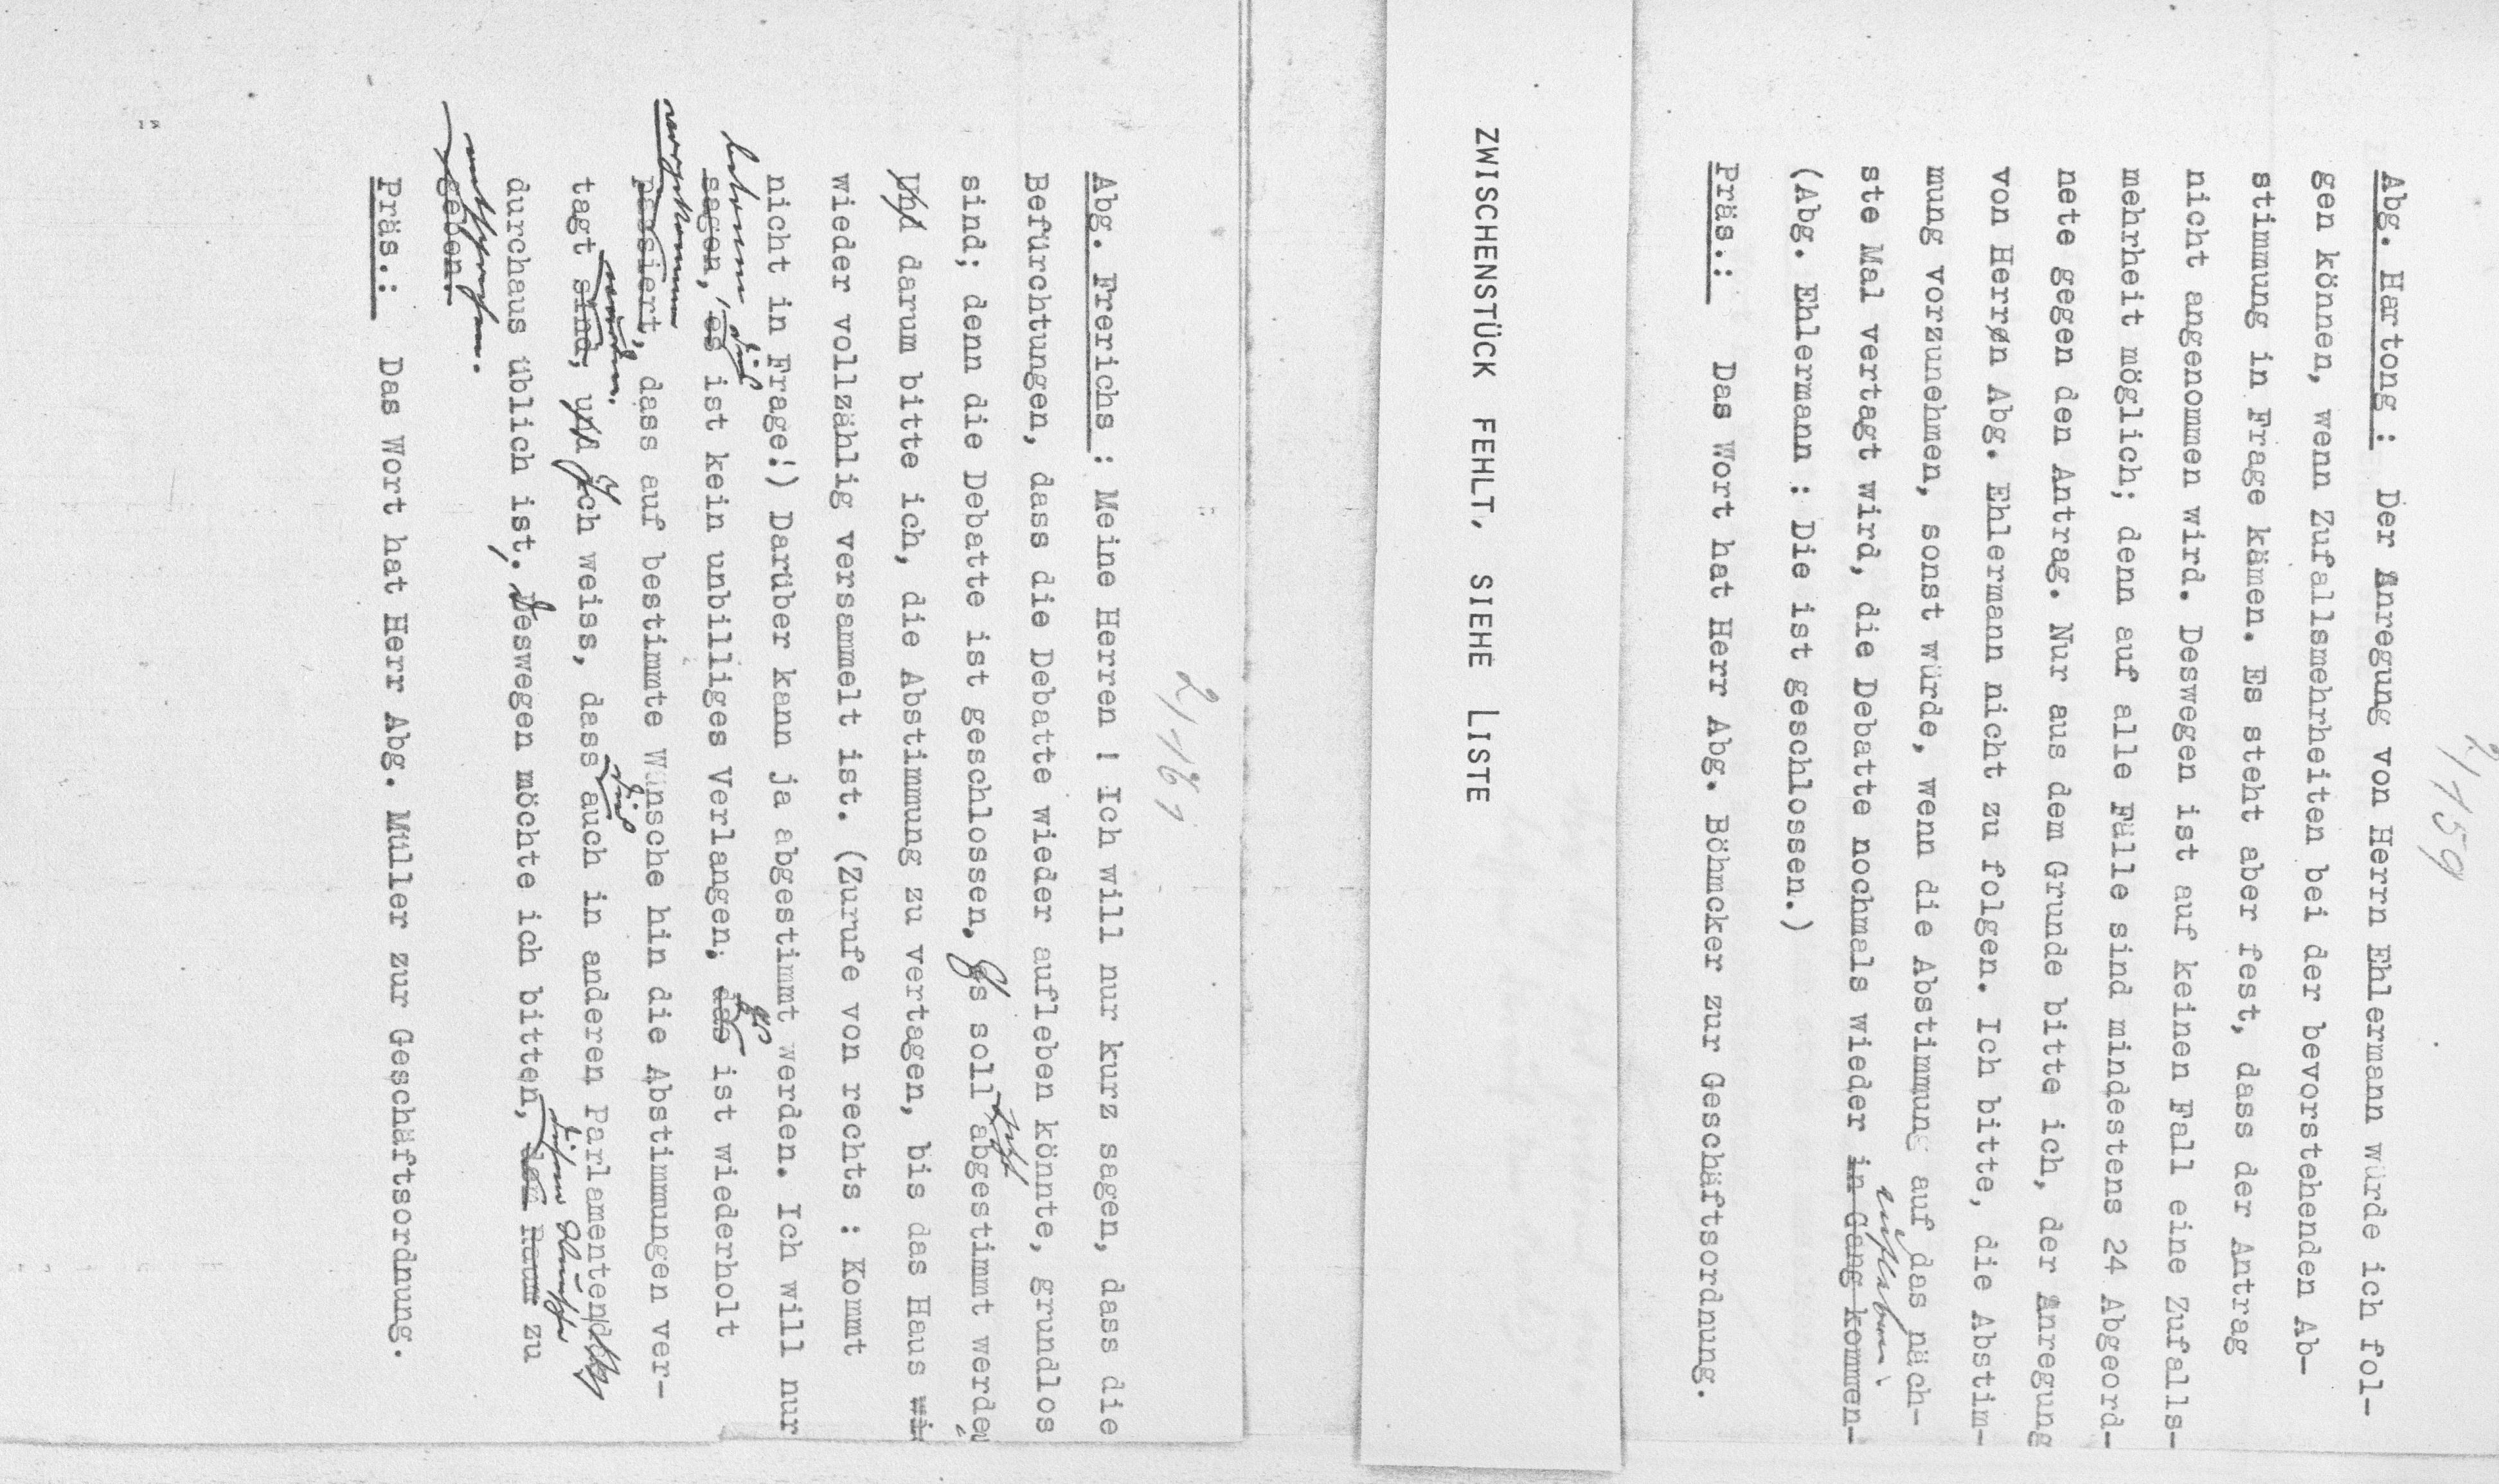 2/159
Abg. Hartong : Der Anregung von Herrn Ehlermann würde ich fol-
gen können, wenn Zufallsmehrheiten bei der bevorstehenden Ab-
stimmung in Frage kämen. Es steht aber fest, dass der Antrag
nicht angenommen wird. Deswegen ist auf keinen Fall eine Zufalls-
mehrheit möglich; denn auf alle Fälle sind mindestens 24 Abgeord-
nete gegen den Antrag. Nur aus dem Grunde bitte ich, der Anregung
von Herrn Abg. Ehlermann nicht zu folgen. Ich bitte, die Abstim-
mung vorzunehmen, sonst würde, wenn die Abstimmung auf das näch-
aufleben
ste Mal vertagt wird, die Debatte nochmals wieder in Gang kommen-
(Abg. Ehlermann : Die ist geschlossen.)
Präs.: Das Wort hat Herr Abg. Böhmcker zur Geschäftsordnung.
ZWISCHENSTÜCK FEHLT, SIEHE LISTE
2/161
Abg. Frerichs : Meine Herren ! Ich will nur kurz sagen, dass die
Befürchtungen, dass die Debatte wieder aufleben könnte, grundlos
sind; denn die Debatte ist geschlossen. Es soll abgestimmt werden
Und darum bitte ich, die Abstimmung zu vertagen, bis das Haus wi
wieder vollzählig versammelt ist. (Zurufe von rechts : Kommt
nicht in Frage!) Darüber kann ja abgestimmt werden. Ich will nur
betonen, dies
es
sagen, es ist kein unbilliges Verlangen, das ist wiederholt
vorgekommen
passiert, dass auf bestimmte Wünsche hin die Abstimmungen ver-
worden.
dies
tagt sind, und Ich weiss, dass auch in anderen Parlamenten
durchaus üblich ist. Deswegen möchte ich bitten, dem Raum zu
diesem Wunsche
entsprechen.
geben.
Präs.: Das Wort hat Herr Abg. Müller zur Geschäftsordnung.